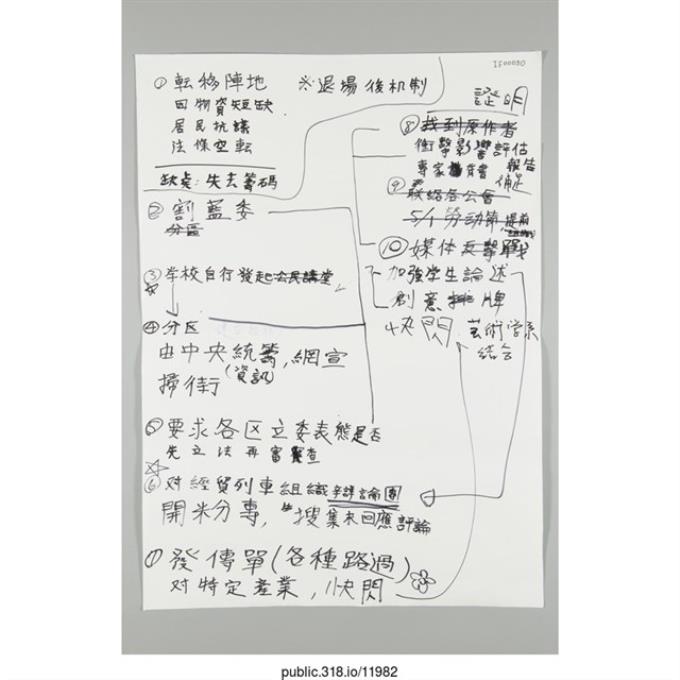 IF00080
① 転移陣地
因物資短缺
居民抗議
法條空転
缺点:失去籌码
※退場後机制
② 割藍委
分區
③ 学校自行發起公民講堂
④ 分区
由中央統籌,網宣
(資訊)
掃街
⑤ 要求各区立委表態是否
先立法再審查
⑥ 对經貿列車組織評論團
開米分專,搜集未回應評論
⑦ 發傳單(各種路過)
对特定產業,快閃
證明
⑧ 找到原作者
衝擊影響評估
報告
專家背書
補足
⑨ 联絡各公會
5/1 勞动節 提前
⑩ 媒体反擊戰
加強学生論述
創意排牌
快閃 芸術学系
結合
public.318.io/11982